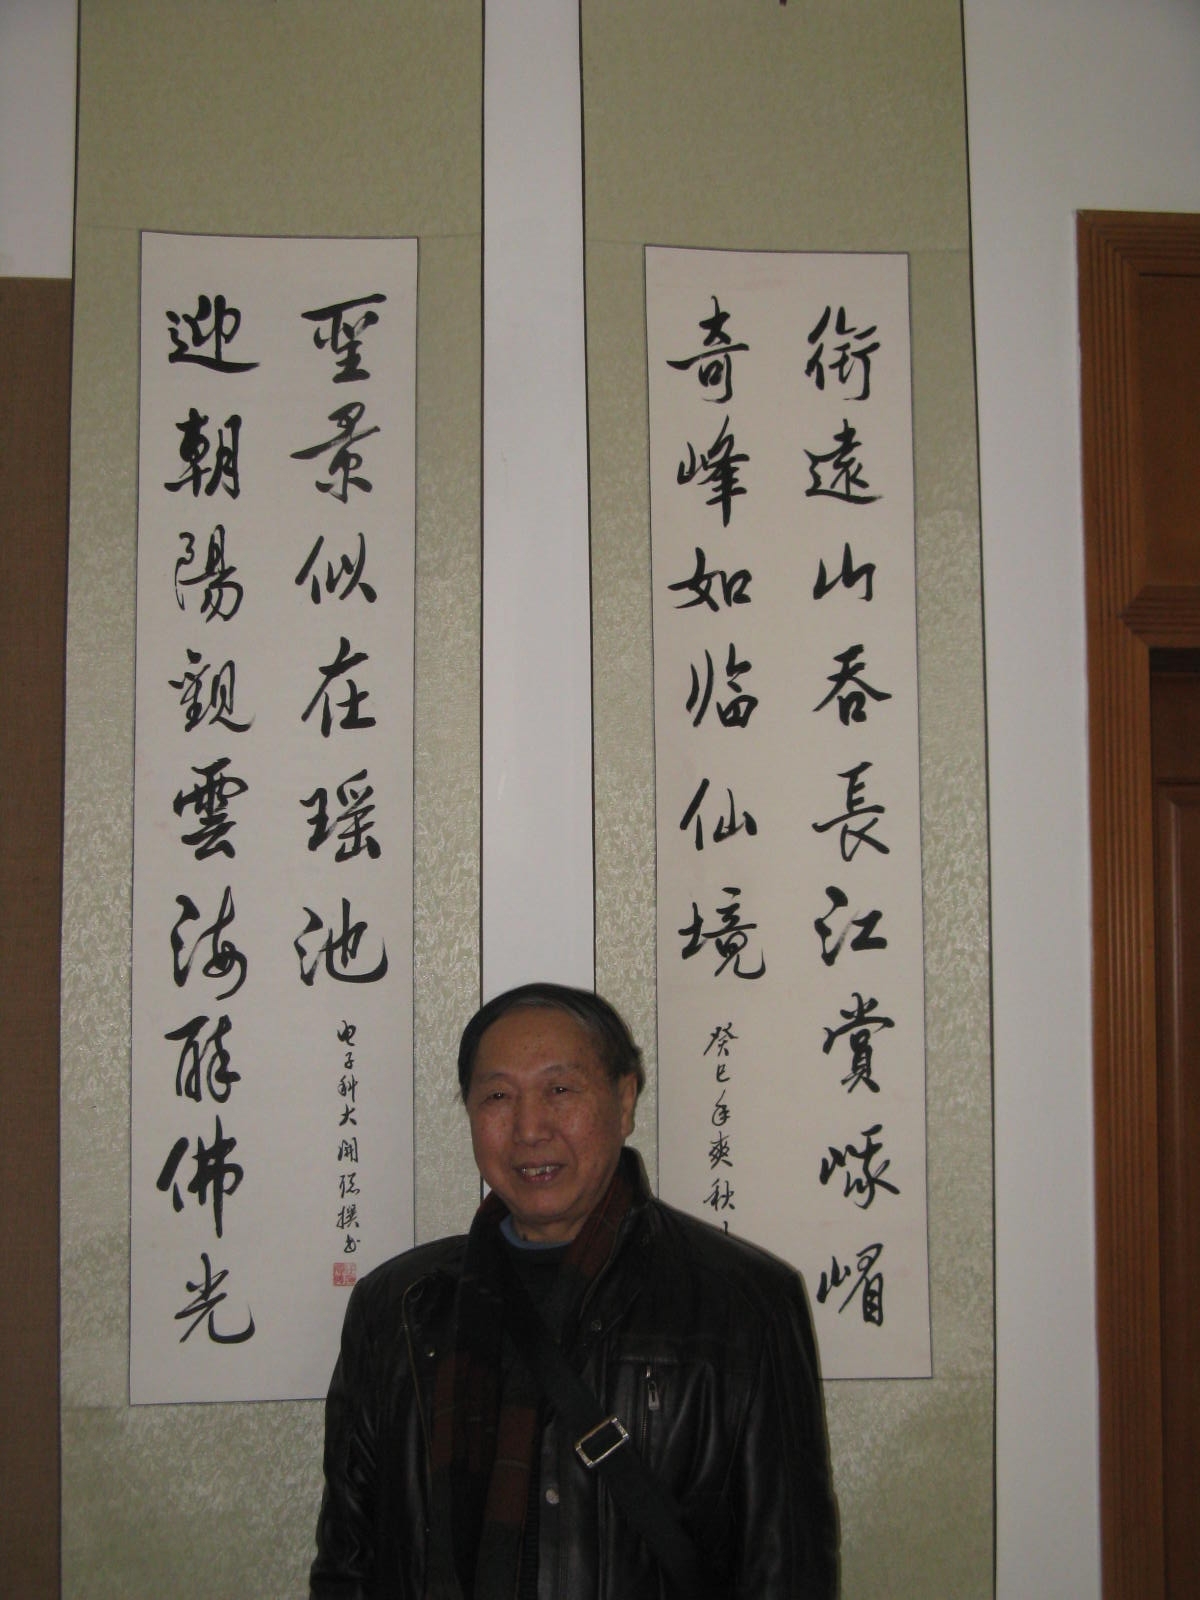 銜遠山吞長江賞峨嵋
奇峰如临仙境
癸巳年爽秋
迎朝陽觀雲海醉佛光
聖景似在瑶池
电子科大開聪撰书